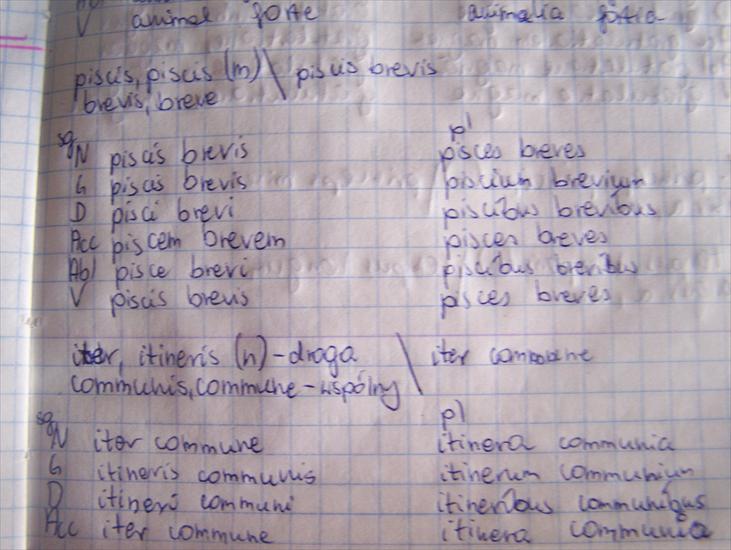 V animal forte animalia fortia
piscis, piscis (m) \ piscis brevis
brevis, breve
sg pl
N piscis brevis pisces breves
G piscis brevis piscium brevium
D pisci brevi piscibus brevibus
Acc piscem brevem pisces breves
Abl pisce brevi piscibus brevibus
V piscis brevis pisces breves
iter, itineris (n) - droga \ iter commune
communis, commune - wspólny
sg pl
N iter commune itinera communia
G itineris communis itinerum communium
D itineri communi itineribus communibus
Acc iter commune itinera communia